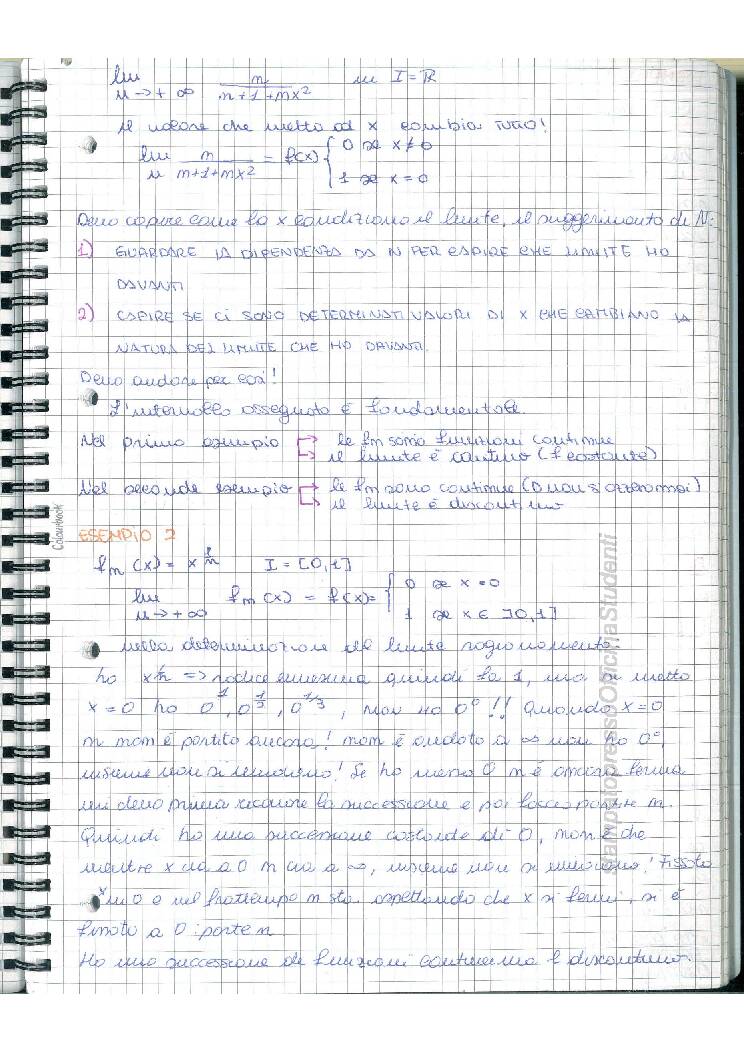 lim n in I = R
n→+∞ n+1+nx²
Il valore che metto ad x cambia TUTTO!
lim n = f(x) { 0 se x≠0
n n+1+nx² 1 se x=0
Devo capire come la x condiziona il limite, il suggerimento di N:
1) GUARDARE LA DIPENDENZA DA N PER CAPIRE CHE LIMITE HO
DAVANTI
2) CAPIRE SE CI SONO DETERMINATI VALORI DI X CHE CAMBIANO LA
NATURA DEL LIMITE CHE HO DAVANTI.
Devo andare per casi!
L'intervallo assegnato è fondamentale.
Nel primo esempio → le fn sono funzioni continue
→ il limite è continuo (f costante)
Nel secondo esempio → le fn sono continue (D non si azzera mai)
→ il limite è discontinuo
ESEMPIO 2
fn (x) = x^1/n I = [0,1]
lim fn (x) = f(x) = { 0 se x=0
n→+∞ 1 se x ∈ ]0,1]
nella determinazione del limite ragionamento:
ho x^1/n => radice ennesima quindi fa 1, ma se metto
x=0 ho 0^1, 0^1/2, 0^1/3, non ho 0^0!! Quando x=0
n non è partito ancora! non è andato a ∞ non ho 0^0,
insieme non si muovono! Se ho messo 0 n è ancora ferma
mi devo prima scrivere la successione e poi faccio partire n.
Quindi ho una successione costante di 0, non è che
mentre x va a 0 n va a ∞, insieme non si muovono! Fisso la
x in 0 e nel frattempo n sta aspettando che x si fermi, si è
fermato a 0 : parte n.
Ho una successione di funzioni continue ma f discontinua.
Colourbook
StampatopressoOfficinaStudenti